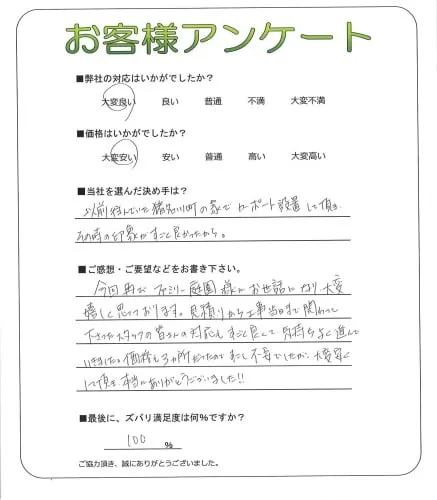 お客様アンケート
■弊社の対応はいかがでしたか？
大変良い 良い 普通 不満 大変不満
■価格はいかがでしたか？
大変安い 安い 普通 高い 大変高い
■当社を選んだ決め手は？
以前住んでいた猪名川町の家でカーポート設置して頂き
その時の印象がすごく良かったから。
■ご感想・ご要望などをお書き下さい。
今回再びファミリー庭園様にお世話になり、大変
嬉しく思っております。見積りから工事当日まで関わって
下さったスタッフの皆さんの対応もすごく良くて、気持ちよく進んで
いきました。価格も3ヵ所だったので すこし不安でしたが、大変安く
して頂き、本当にありがとうございました!!
■最後に、ズバリ満足度は何%ですか？
100 %
ご協力頂き、誠にありがとうございました。